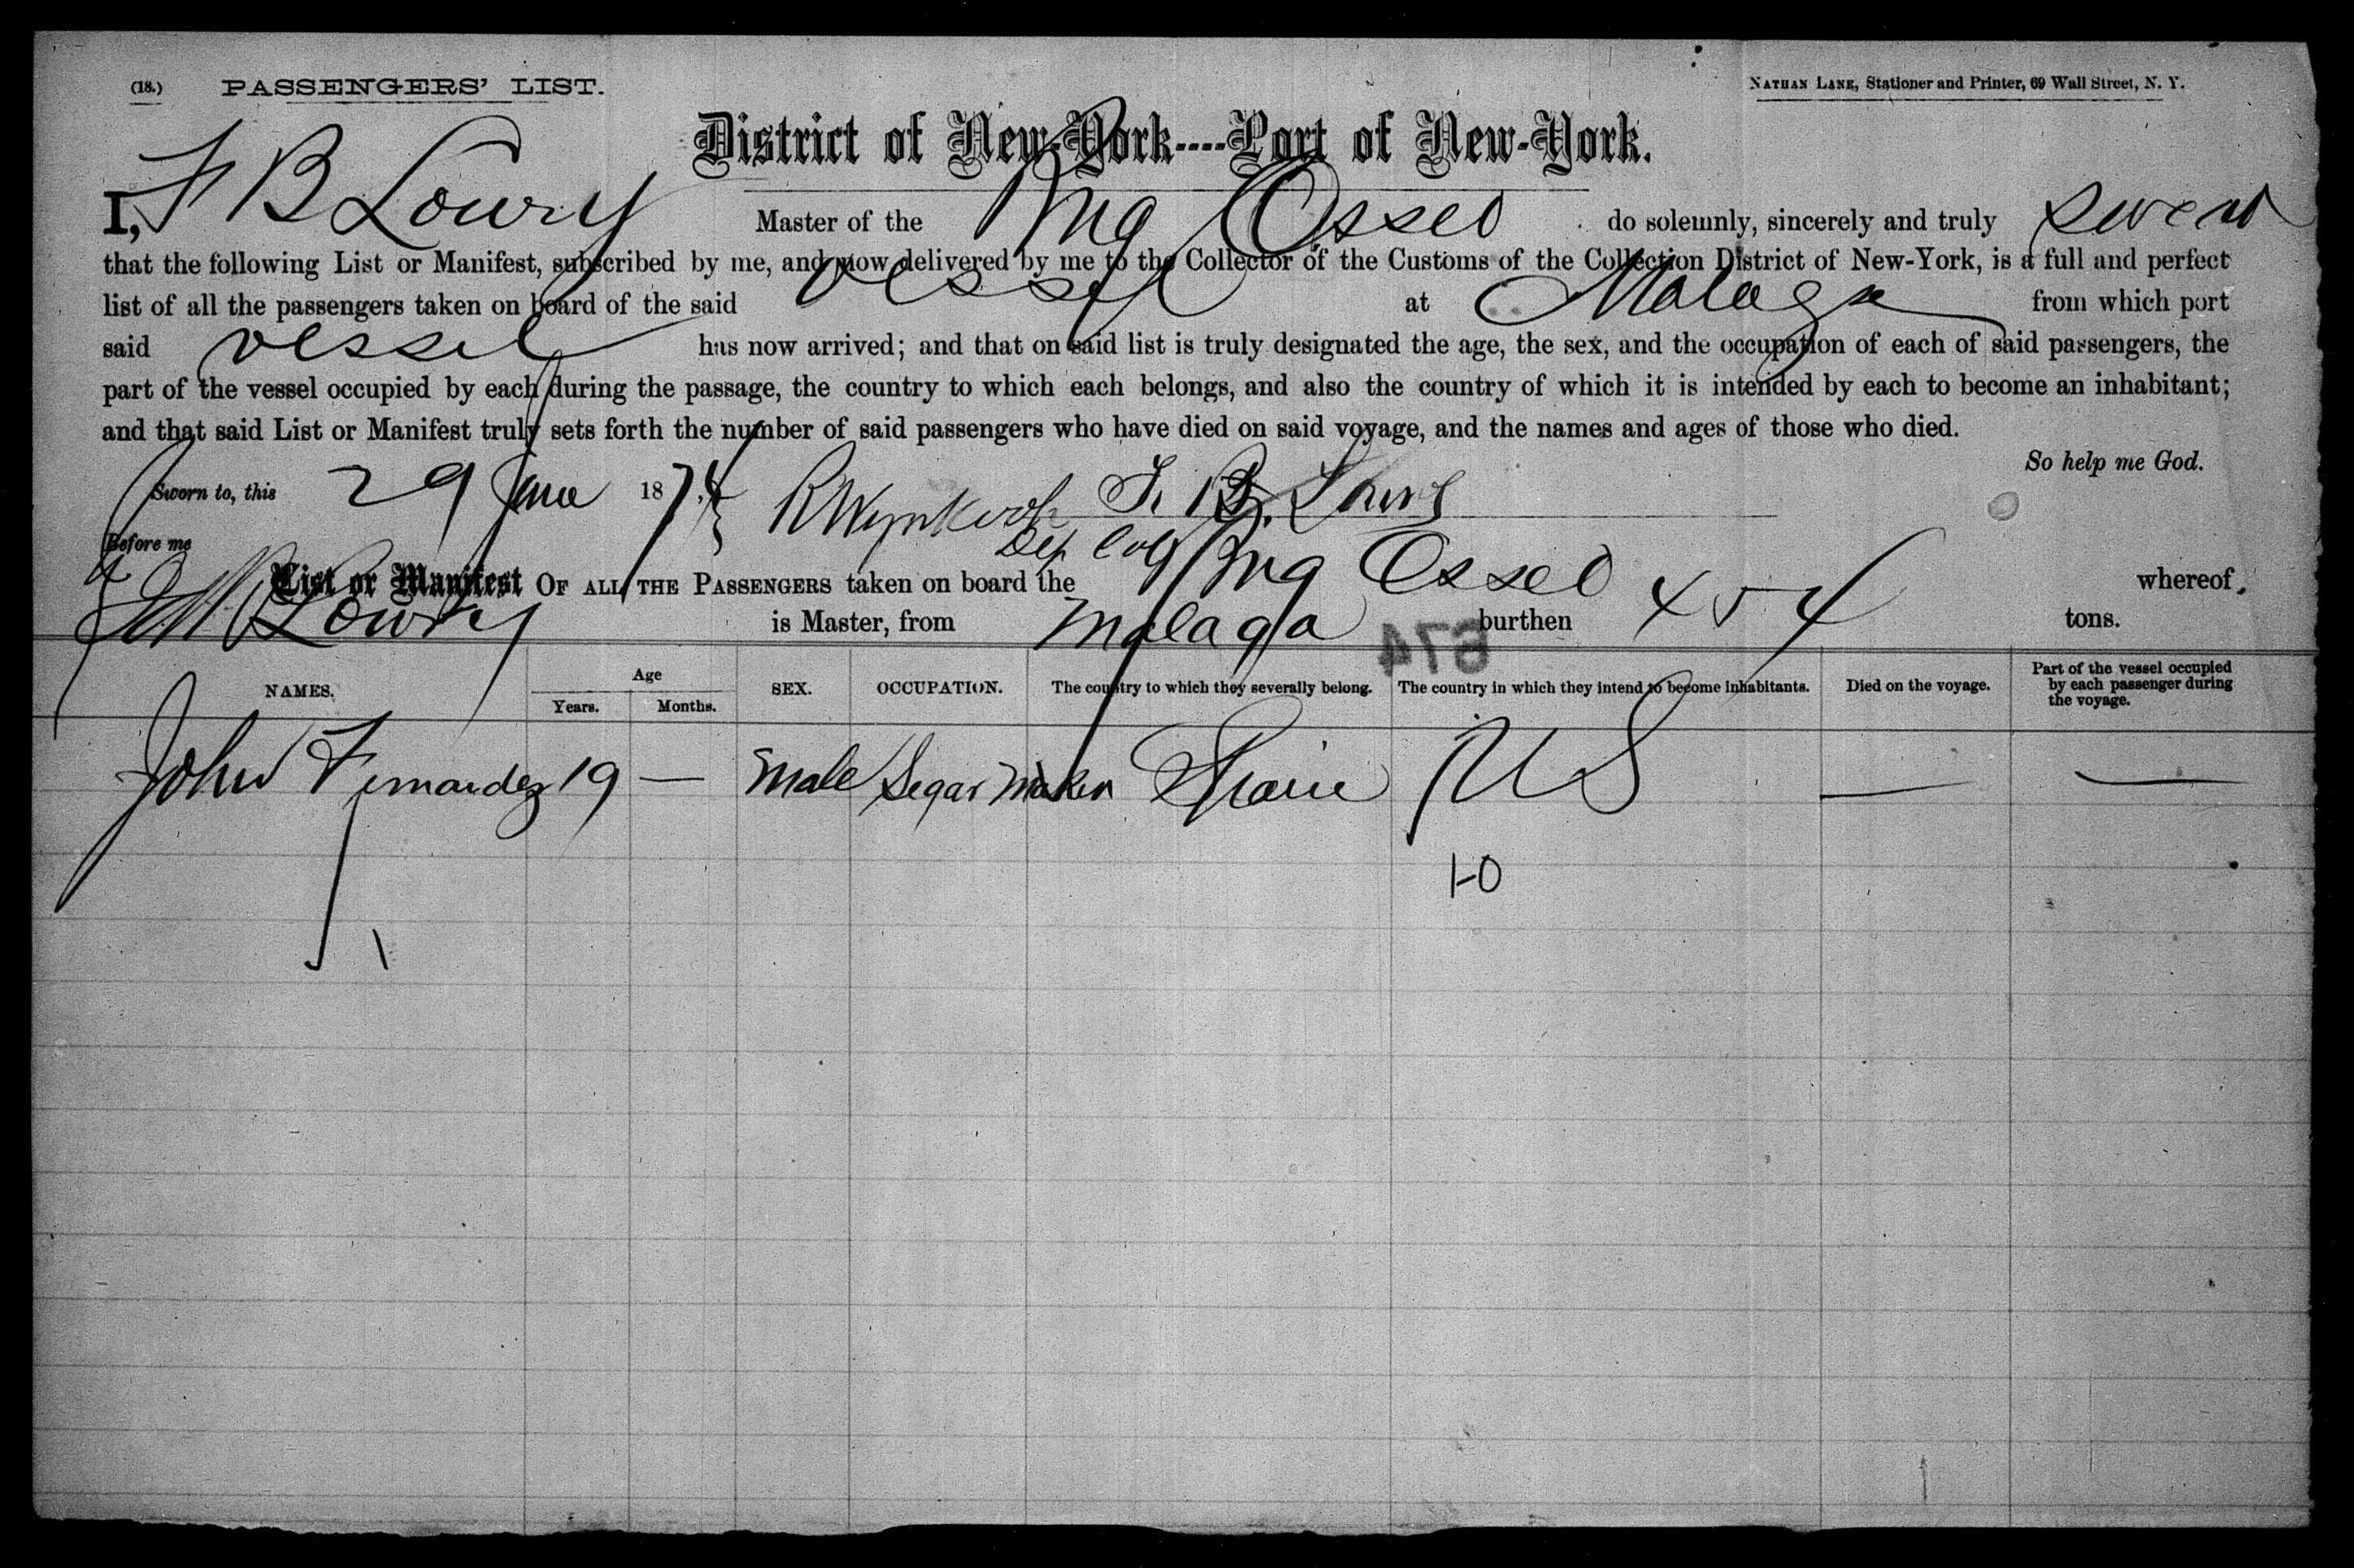 (18.) PASSENGERS' LIST.
NATHAN LANE, Stationer and Printer, 69 Wall Street, N. Y.
District of New-York----Port of New-York.
I, F B Lowry Master of the Brig Osseo do solemnly, sincerely and truly swear
that the following List or Manifest, subscribed by me, and now delivered by me to the Collector of the Customs of the Collection District of New-York, is a full and perfect
list of all the passengers taken on board of the said vessel at Malaga from which port
said vessel has now arrived; and that on said list is truly designated the age, the sex, and the occupation of each of said passengers, the
part of the vessel occupied by each during the passage, the country to which each belongs, and also the country of which it is intended by each to become an inhabitant;
and that said List or Manifest truly sets forth the number of said passengers who have died on said voyage, and the names and ages of those who died.
So help me God.
Sworn to, this 29 June 1874 F. B. Lowry
Before me Dep Col
List or Manifest OF ALL THE PASSENGERS taken on board the Brig Osseo whereof
Lowry is Master, from Malaga burthen 454 tons.
674
NAMES. Age Years. Months. SEX. OCCUPATION. The country to which they severally belong. The country in which they intend to become inhabitants. Died on the voyage. Part of the vessel occupied by each passenger during the voyage.
John Fernandez 19 — Male Segar Maker Spain US — —
1-0
1